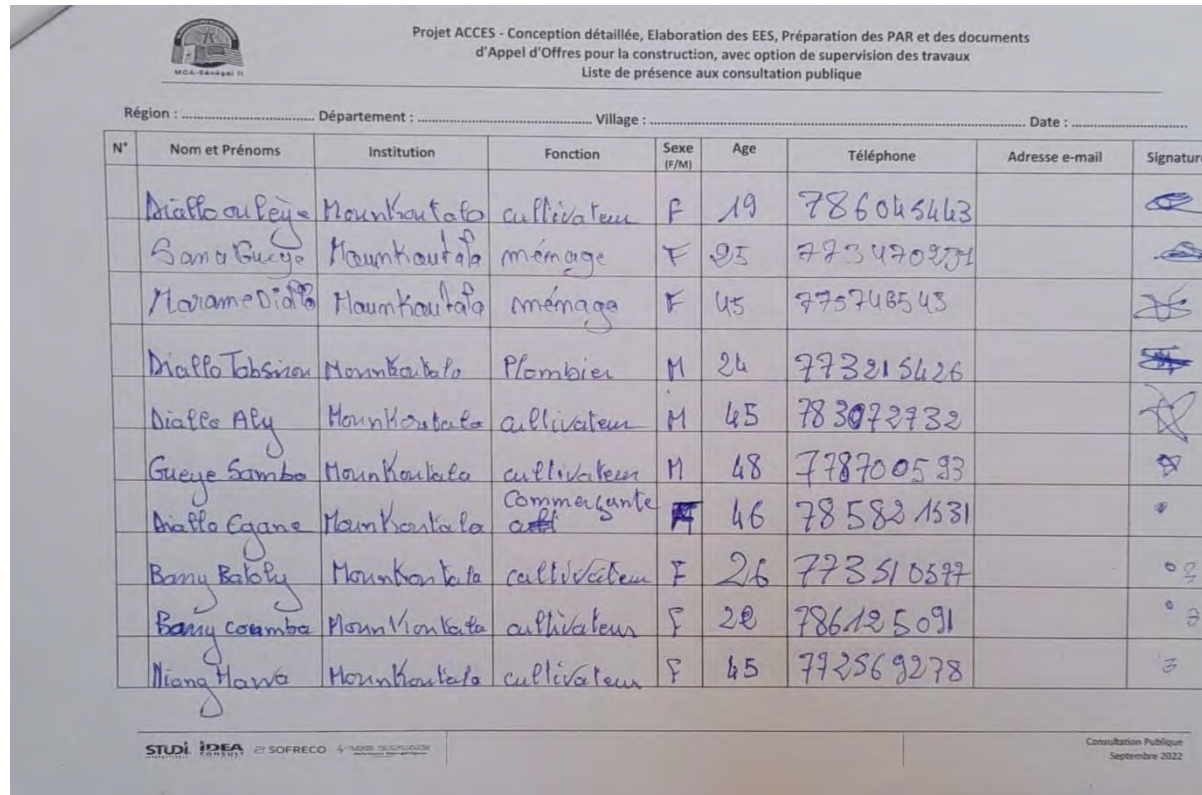 MCA-Sénégal II
Projet ACCES - Conception détaillée, Elaboration des EES, Préparation des PAR et des documents
d'Appel d'Offres pour la construction, avec option de supervision des travaux
Liste de présence aux consultation publique
Région : ................................. Département : ............................................ Village : ................................................................................................ Date : .............................
N° Nom et Prénoms Institution Fonction Sexe (F/M) Age Téléphone Adresse e-mail Signature
Diallo ouleye Mounkoutala cultivateur F 19 786045443
Sana Gueye Mounkoutala ménage F 25
Marame Diallo Mounkoutala ménage F 45 775748543
Diallo Mounkoutala Plombier M 24 773215426
Diallo Aly Mounkoutala cultivateur M 45 783072732
Gueye Samba Mounkoutala cultivateur M 48 778700593
Diallo Egane Mounkoutala Commerçante 46 785821531
Barry Mounkoutala cultivateur F 26 773510597
Barry coumba Mounkoutala cultivateur F 22 786125091
Niang Hawa Mounkoutala cultivateur F 45 772569278
STUDI IDEA CONSULT SOFRECO
Consultation Publique
Septembre 2022